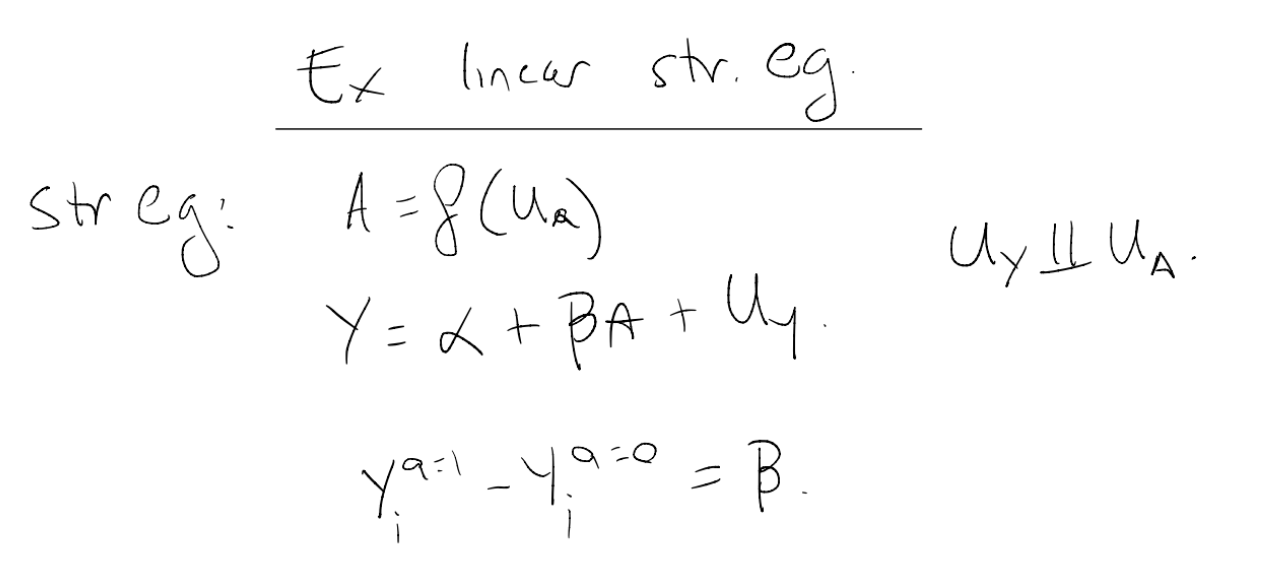 Ex linear str. eq.
str eq: A = f(U_A) U_Y ⫫ U_A.
Y = α + βA + U_Y.
Y_i^{a=1} - Y_i^{a=0} = β.